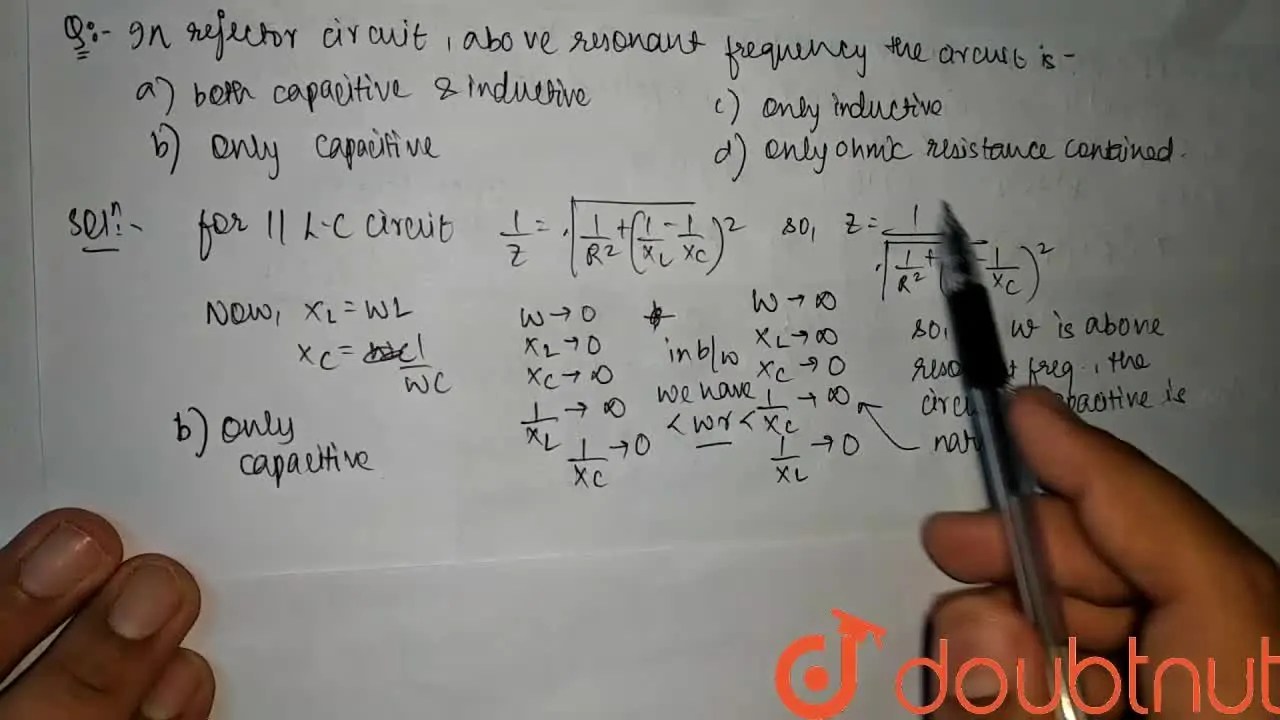 Q:- In rejector circuit, above resonant frequency the circuit is-
a) both capacitive & inductive
c) only inductive
b) only capacitive
d) only ohmic resistance contained.
Solⁿ:- for || L-C circuit 1/Z = √(1/R² + (1/XL - 1/XC)²) so, Z = 1/√(1/R² + ( - 1/XC)²)
Now, XL = WL
XC = 1/WC
W → 0
XL → 0
XC → ∞
1/XL → ∞
1/XC → 0
in b/w
we have
< wr <
W → ∞
XL → ∞
XC → 0
1/XC → ∞
1/XL → 0
so, w is above
freq., the
is
b) only
capacitive
doubtnut